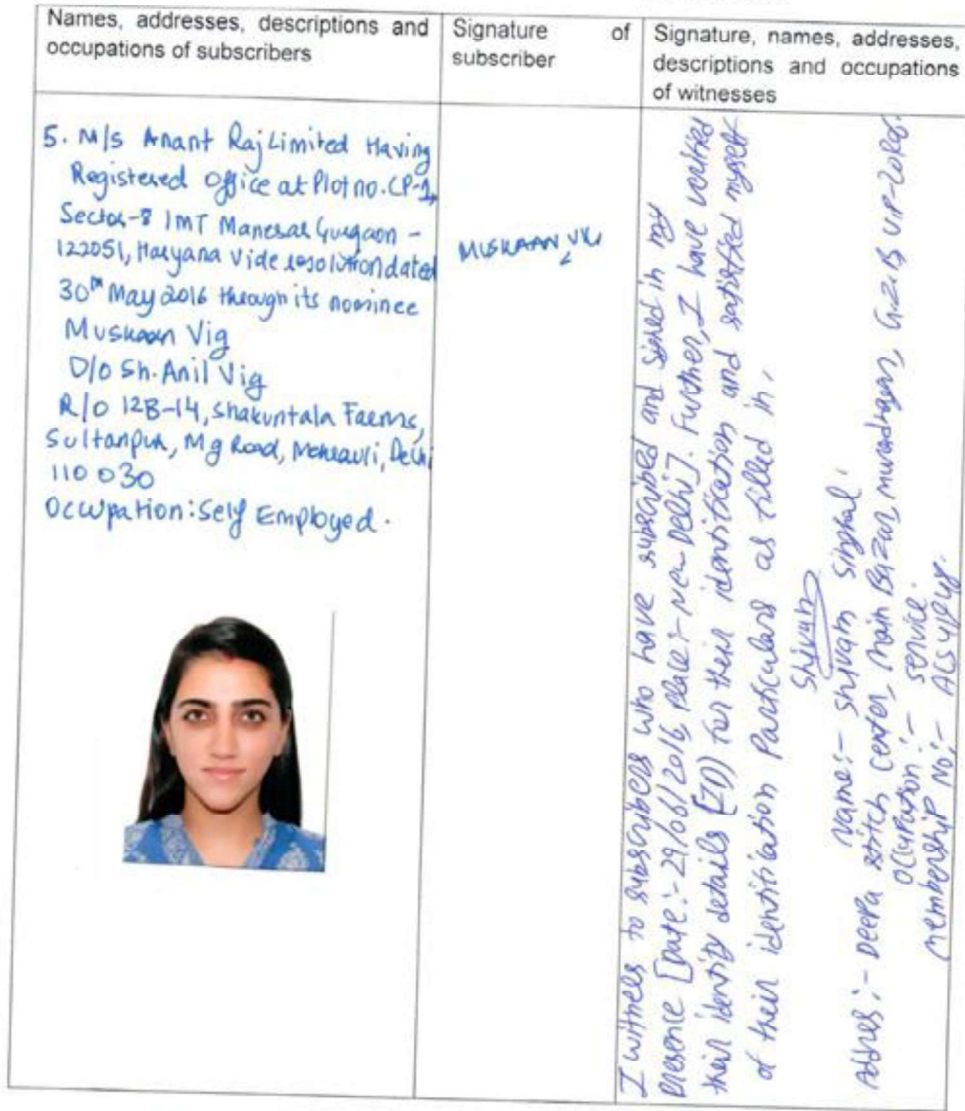 Names, addresses, descriptions and
occupations of subscribers
Signature of
subscriber
Signature, names, addresses,
descriptions and occupations
of witnesses
5. M/s Anant Raj Limited Having
Registered Office at Plot no. CP-1,
Sector-8 IMT Manesar Gurgaon -
122051, Haryana Vide resolution dated
30th May 2016 through its nominee
Muskaan Vig
D/o Sh. Anil Vig
R/o 12B-14, Shakuntala Farms,
Sultanpur, Mg Road, Mehrauli, Delhi
110 030
Occupation: Self Employed.
MUSKAAN VIG
I witness to subscribers who have subscribed and signed in my
presence [Date:- 29/06/2016, Place:- New Delhi]. Further, I have verified
their identity details [ID] for their identification and satisfied myself
of their identification Particulars as filled in.
Shivam
Name:- Shivam Singhal
Address:- Deepa stitch center, Main Bazar, muradnagar, UP-
Occupation:- Service
Membership No:- ACS